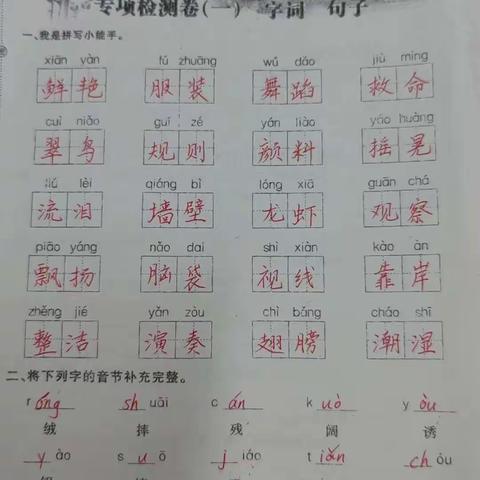 专项检测卷(一) 字词 句子
一、我是拼写小能手。
xiān yàn fú zhuāng wǔ dǎo jiù mìng
鲜艳 服装 舞蹈 救命
cuì niǎo guī zé yán liào yáo huàng
翠鸟 规则 颜料 摇晃
liú lèi qiáng bì lóng xiā guān chá
流泪 墙壁 龙虾 观察
piāo yáng nǎo dai shì xiàn kào àn
飘扬 脑袋 视线 靠岸
zhěng jié yǎn zòu chì bǎng cháo shī
整洁 演奏 翅膀 潮湿
二、将下列字的音节补充完整。
r óng sh uāi c án k uò y òu
绒 摔 残 阔 诱
y ào s u ō j iáo t iǎn ch òu